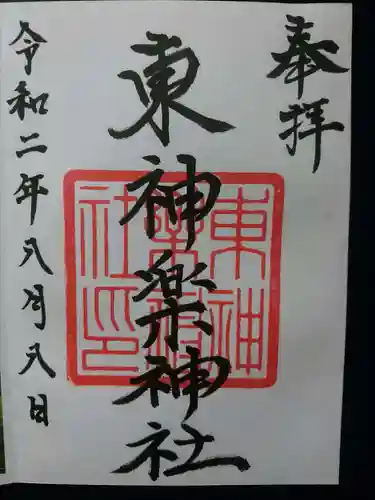 奉拝
東神楽神社
東神
楽神
社印
令和二年八月八日